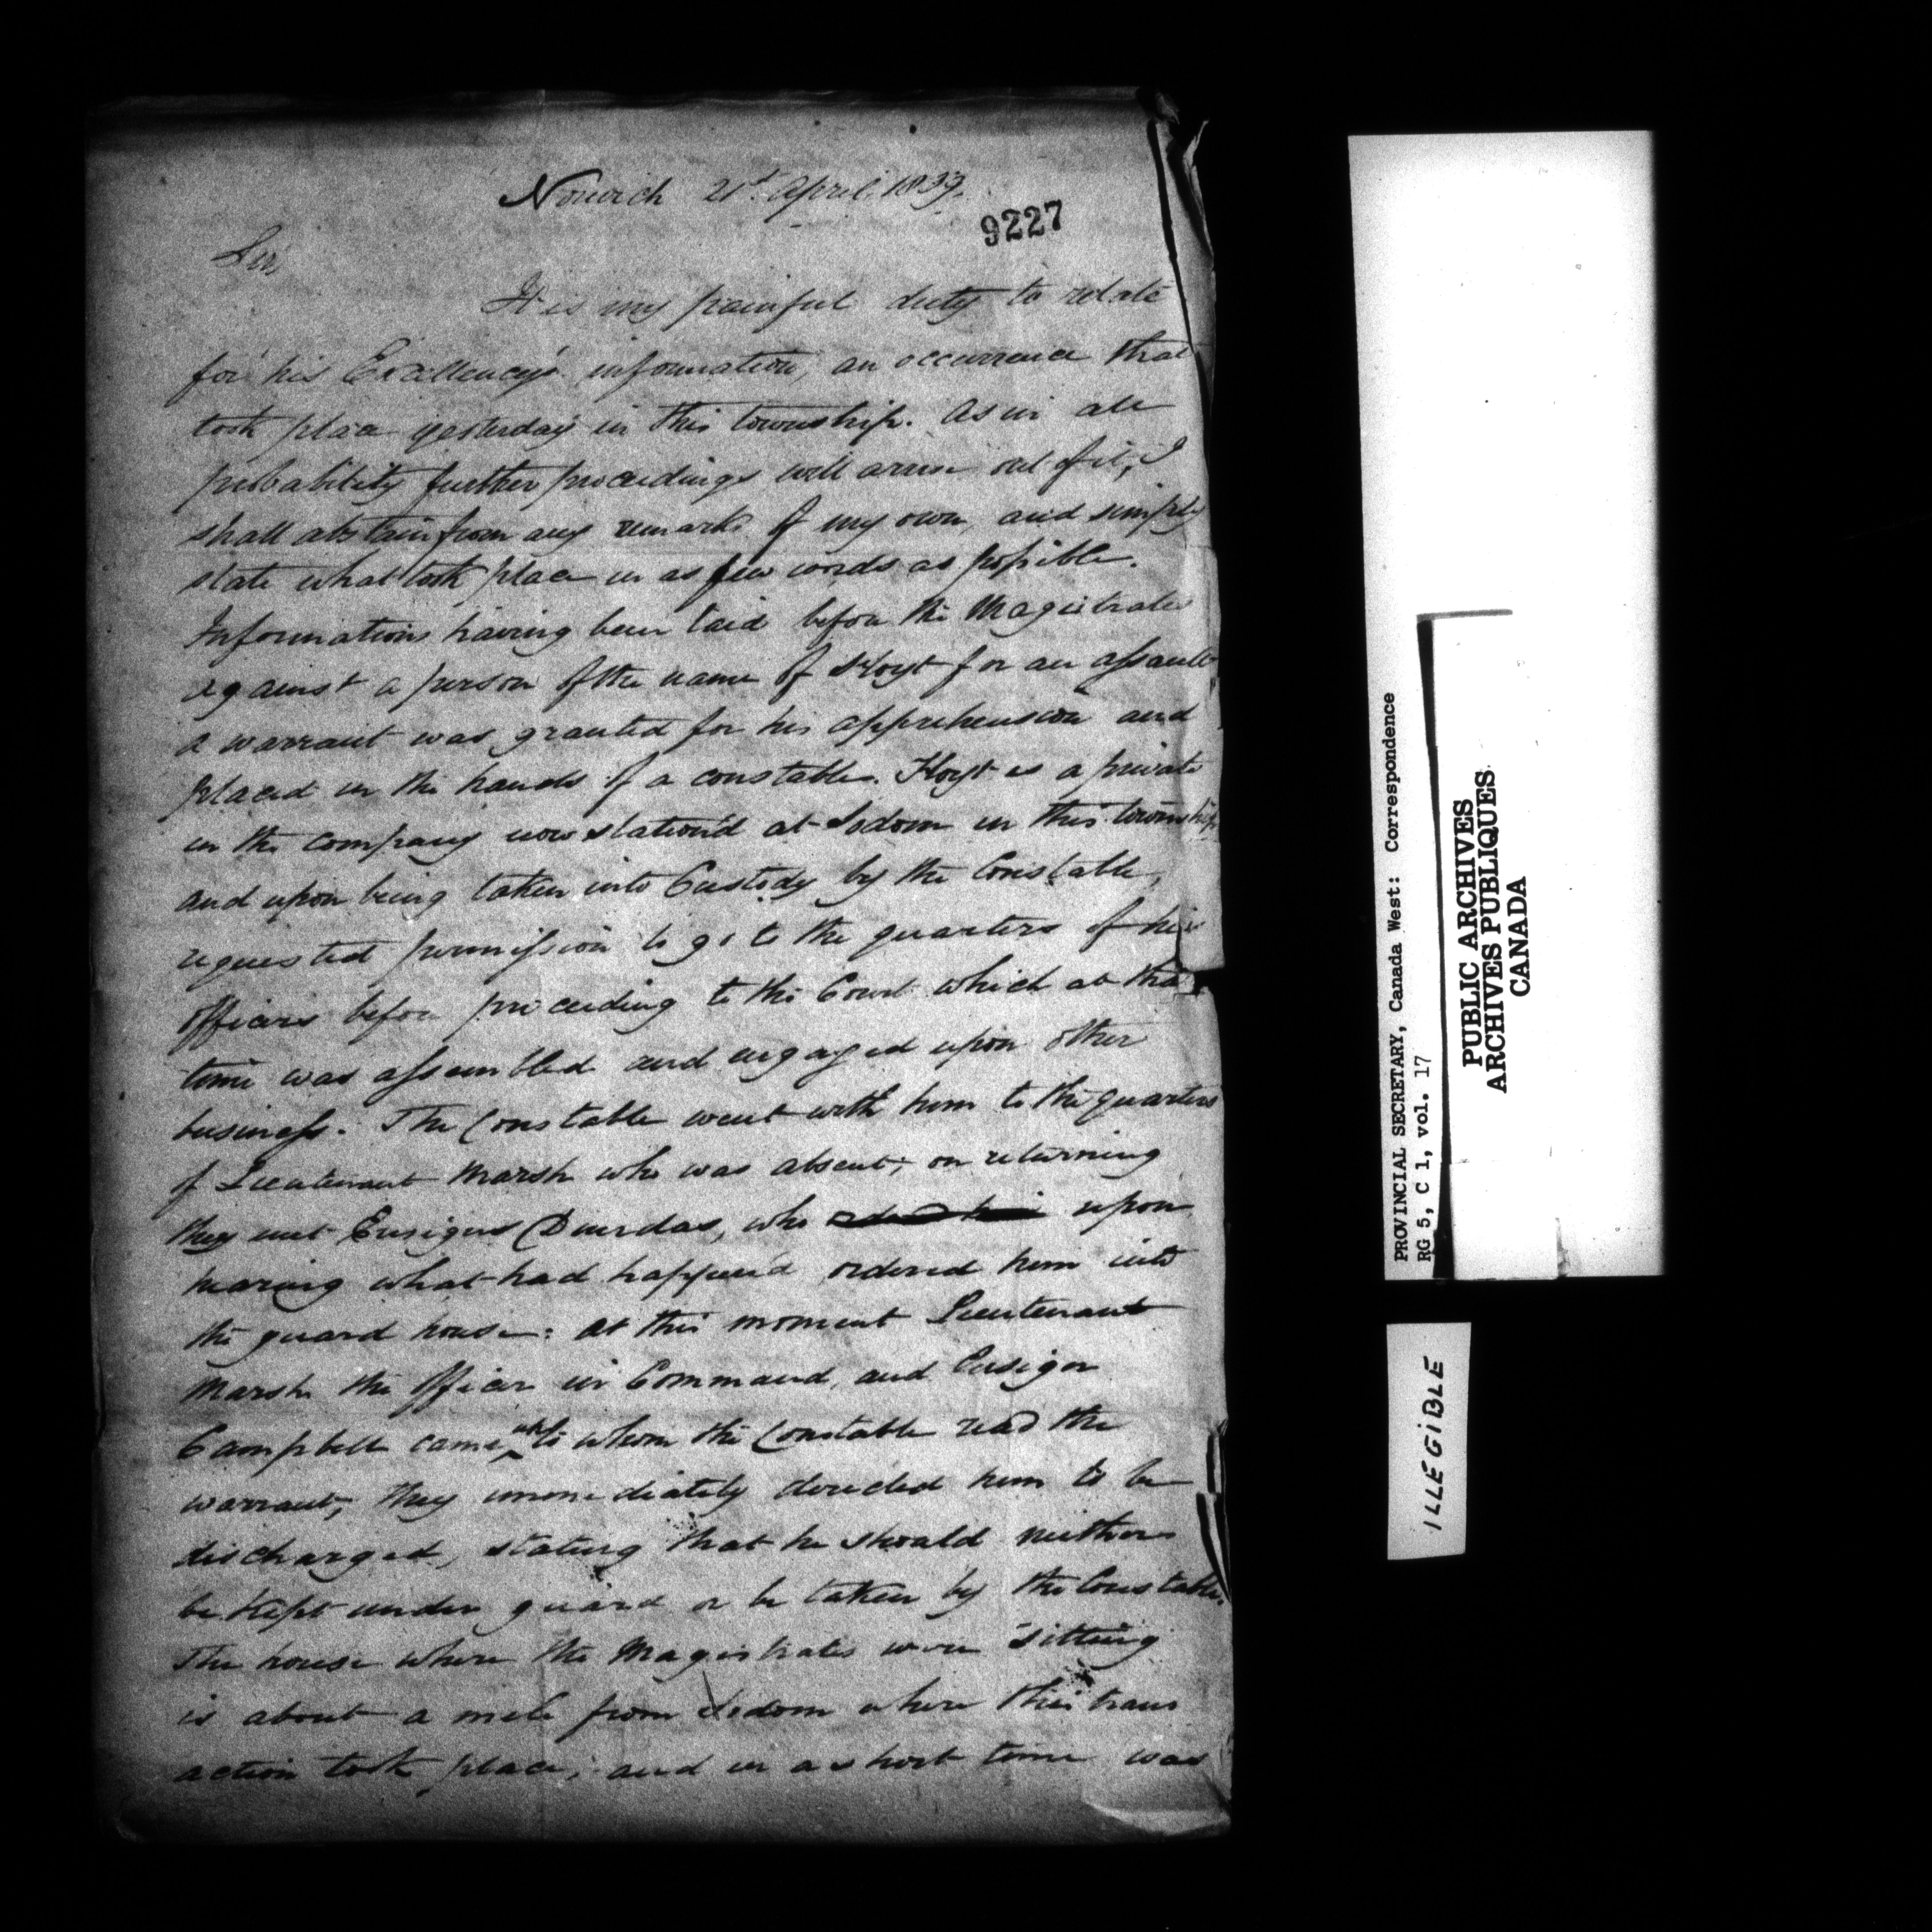 Norwich 21st April 1839.
9227
Sir,
It is my painful duty to relate
for his Excellency's information, an occurrence that
took place yesterday in this township. As in all
probability further proceedings will arise out of it, I
shall abstain from any remarks of my own, and simply
state what took place in as few words as possible.
Informations having been laid before the Magistrates
against a person of the name of Hoyt for an assault
a warrant was granted for his apprehension and
placed in the hands of a constable. Hoyt is a private
in the company now station'd at Sodom in this township
and upon being taken into Custody by the Constable,
requested permission to go to the quarters of his
officers before proceeding to the Court which at that
time was assembled and engaged upon other
business. The Constable went with him to the quarters
of Lieutenant Marsh who was absent; on returning
they met Ensigns Dundas, who upon
hearing what had happened ordered him into
the guard house: at this moment Lieutenant
Marsh the officer in Command, and Ensign
Campbell came up to whom the Constable read the
warrant, they immediately directed him to be
discharged, stating that he should neither
be kept under guard or be taken by the Constable.
The house where the Magistrates were sitting
is about a mile from Sodom where this trans
action took place; and in a short time was
PROVINCIAL SECRETARY, Canada West: Correspondence
RG 5, C 1, vol. 17
PUBLIC ARCHIVES
ARCHIVES PUBLIQUES
CANADA
ILLEGIBLE